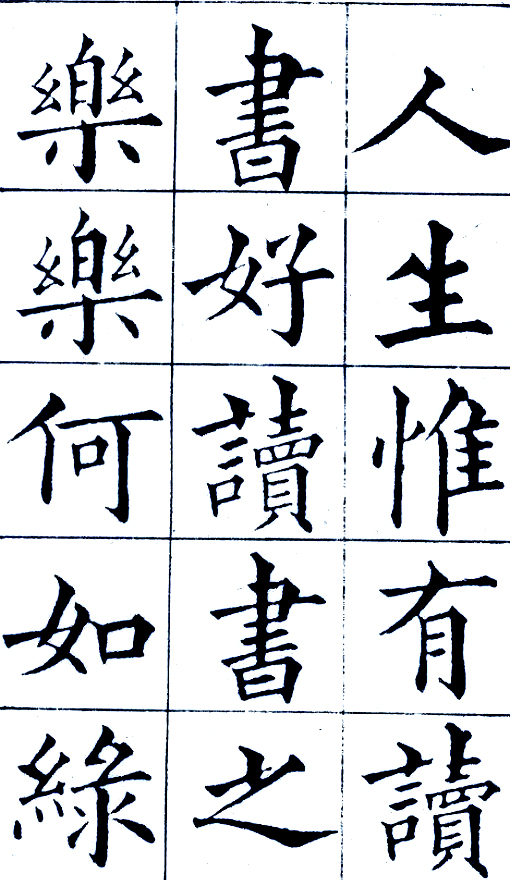 人生惟有讀
書好讀書之
樂樂何如綠